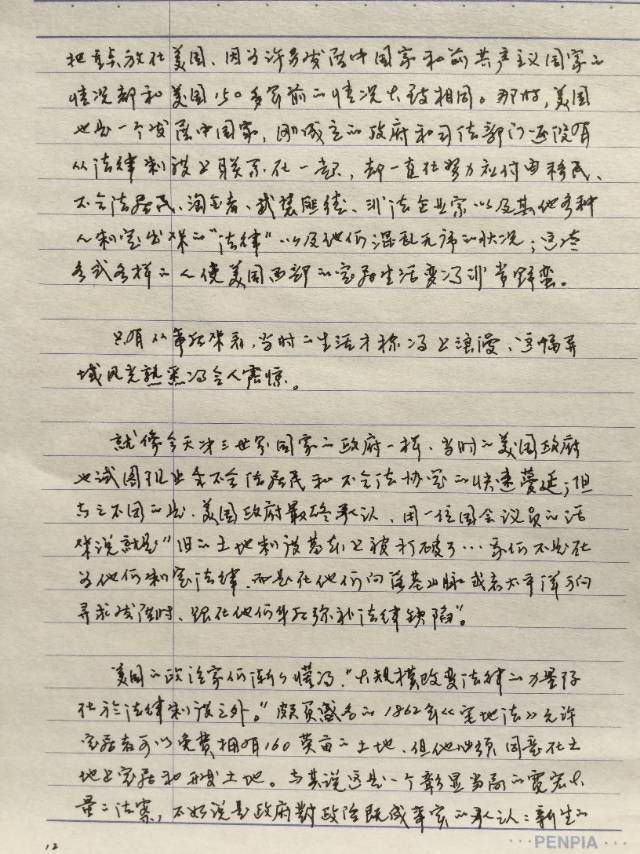 把重点放在美国，因为许多发展中国家和前共产主义国家的
情况都和美国150多年前的情况大致相同。那时，美国
也是一个发展中国家，刚成立的政府和司法部门还没有
从法律制度上联系在一起，却一直在努力应付由移民、
不合法居民、淘金者、武装匪徒、非法企业家以及其他各种
人制定出来的“法律”以及他们混乱无序的状况；这些
各式各样的人使美国西部的定居生活变得非常野蛮。
只有从事后来看，当时的生活才称得上浪漫，这幅异
域风光熟悉得令人震惊。
就像今天第三世界国家的政府一样，当时的美国政府
也试图阻止不合法居民和不合法协定的快速蔓延；但
与之不同的是，美国政府最终承认，用一位国会议员的话
来说就是“旧的土地制度基本上被打破了…我们不是在
为他们制定法律，而是在他们向落基山脉或者太平洋方向
寻求发展时，跟在他们身后弥补法律缺陷”。
美国的政治家们渐渐懂得，“大规模改变法律的力量存
在于法律制度之外。”颇负盛名的1862年《宅地法》允许
定居者可以免费拥有160英亩的土地，但他必须同意在土
地上定居和开发土地。与其说这是一个彰显当局的宽宏大
量的法案，不如说是政府对政治既成事实的承认：新生的
12
PENPIA